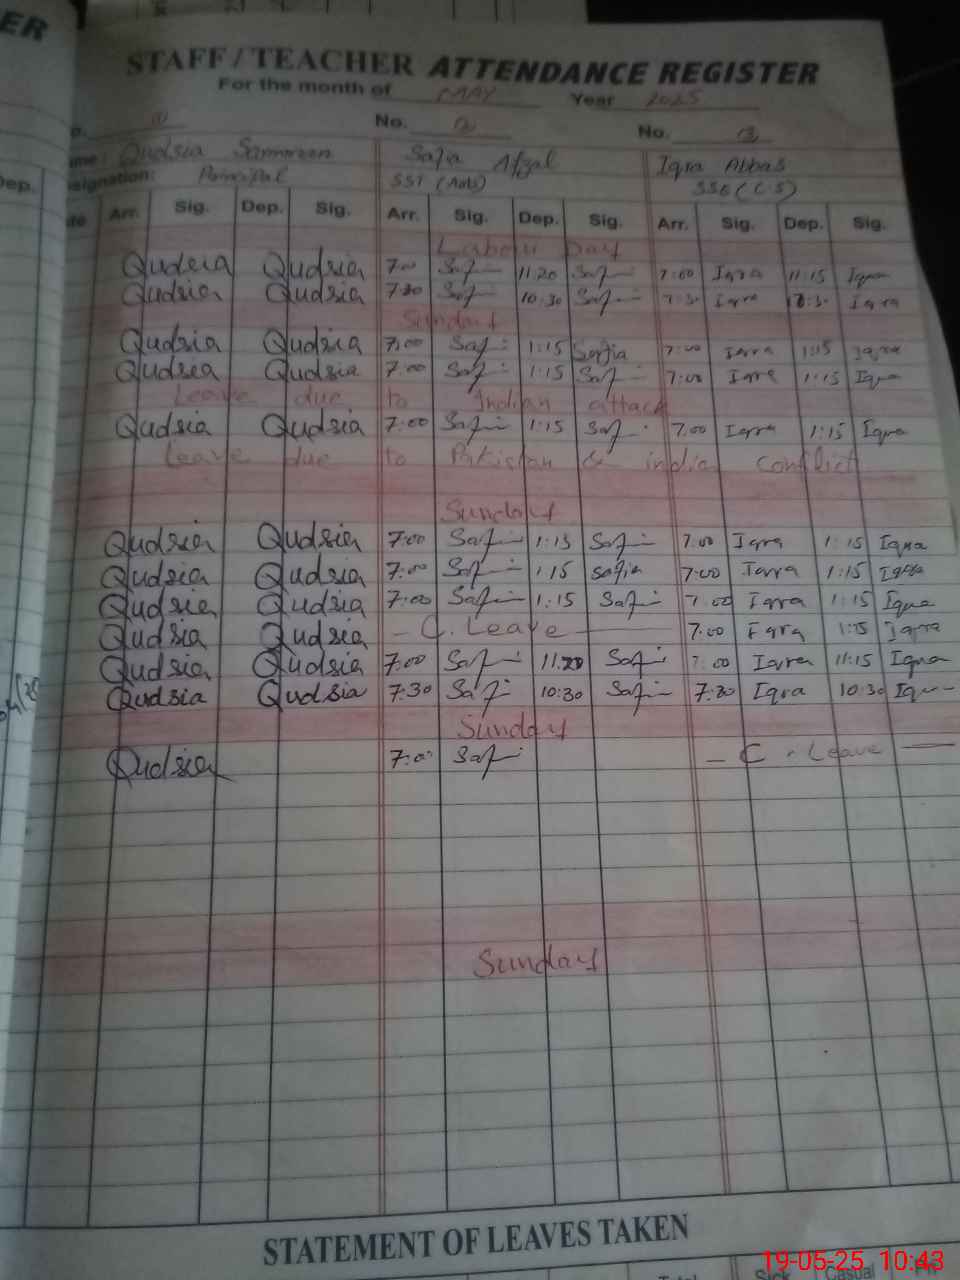 ER
STAFF / TEACHER ATTENDANCE REGISTER
For the month of MAY Year 2025
No. 2 No. 3
Qudsia Samreen Safia Afzal Iqra Abbas
signation: Principal SST (Arts) SSE (C.S)
Dep. Arr. Sig. Dep. Sig. Arr. Sig. Dep. Sig. Arr. Sig. Dep. Sig.
Labour Day
Qudsia Qudsia 7:00 Safi 11:20 Safi 7:00 Iqra 11:15 Iqra
Qudsia Qudsia 7:30 Safi 10:30 Safi 7:30 Iqra Iqra
Sunday
Qudsia Qudsia 7:00 Saf 1:15 Safia 7:00 Iqra 1:15 Iqra
Qudsia Qudsia 7:00 Saf 1:15 Saf 7:00 Iqra 1:15 Iqra
Leave due to Indian attack
Qudsia Qudsia 7:00 Safi 1:15 Saf 7:00 Iqra 1:15 Iqra
Leave due to Pakistan & india conflict
Sunday
Qudsia Qudsia 7:00 Safi 1:15 Safi 7:00 Iqra 1:15 Iqra
Qudsia Qudsia 7:00 Safi 1:15 Safia 7:00 Iqra 1:15 Iqra
Qudsia Qudsia 7:00 Safi 1:15 Safi 7:00 Iqra 1:15 Iqra
Qudsia Qudsia - C. Leave - 7:00 Iqra 1:15 Iqra
Qudsia Qudsia 7:00 Safi 11:20 Safi 7:00 Iqra 11:15 Iqra
Qudsia Qudsia 7:30 Safi 10:30 Safi 7:30 Iqra 10:30 Iqra
Sunday
Qudsia 7:00 Saf - C. Leave -
Sunday
STATEMENT OF LEAVES TAKEN
Sick Casual
19-05-25 10:43